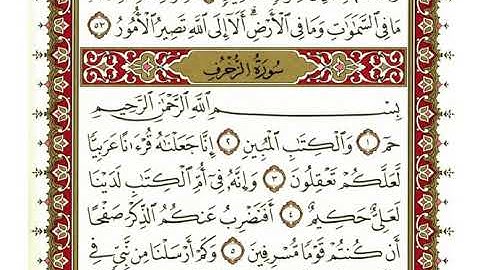 مَا فِي السَّمَٰوَٰتِ وَمَا فِي الْأَرْضِ ۗ أَلَا إِلَى اللَّهِ تَصِيرُ الْأُمُورُ ٥٣
سُورَةُ الزُّخْرُفِ
بِسْمِ اللَّهِ الرَّحْمَٰنِ الرَّحِيمِ
حمٓ ١ وَالْكِتَابِ الْمُبِينِ ٢ إِنَّا جَعَلْنَاهُ قُرْءَانًا عَرَبِيًّا
لَّعَلَّكُمْ تَعْقِلُونَ ٣ وَإِنَّهُ فِي أُمِّ الْكِتَابِ لَدَيْنَا
لَعَلِيٌّ حَكِيمٌ ٤ أَفَنَضْرِبُ عَنكُمُ الذِّكْرَ صَفْحًا
أَن كُنتُمْ قَوْمًا مُّسْرِفِينَ ٥ وَكَمْ أَرْسَلْنَا مِن نَّبِيٍّ فِي